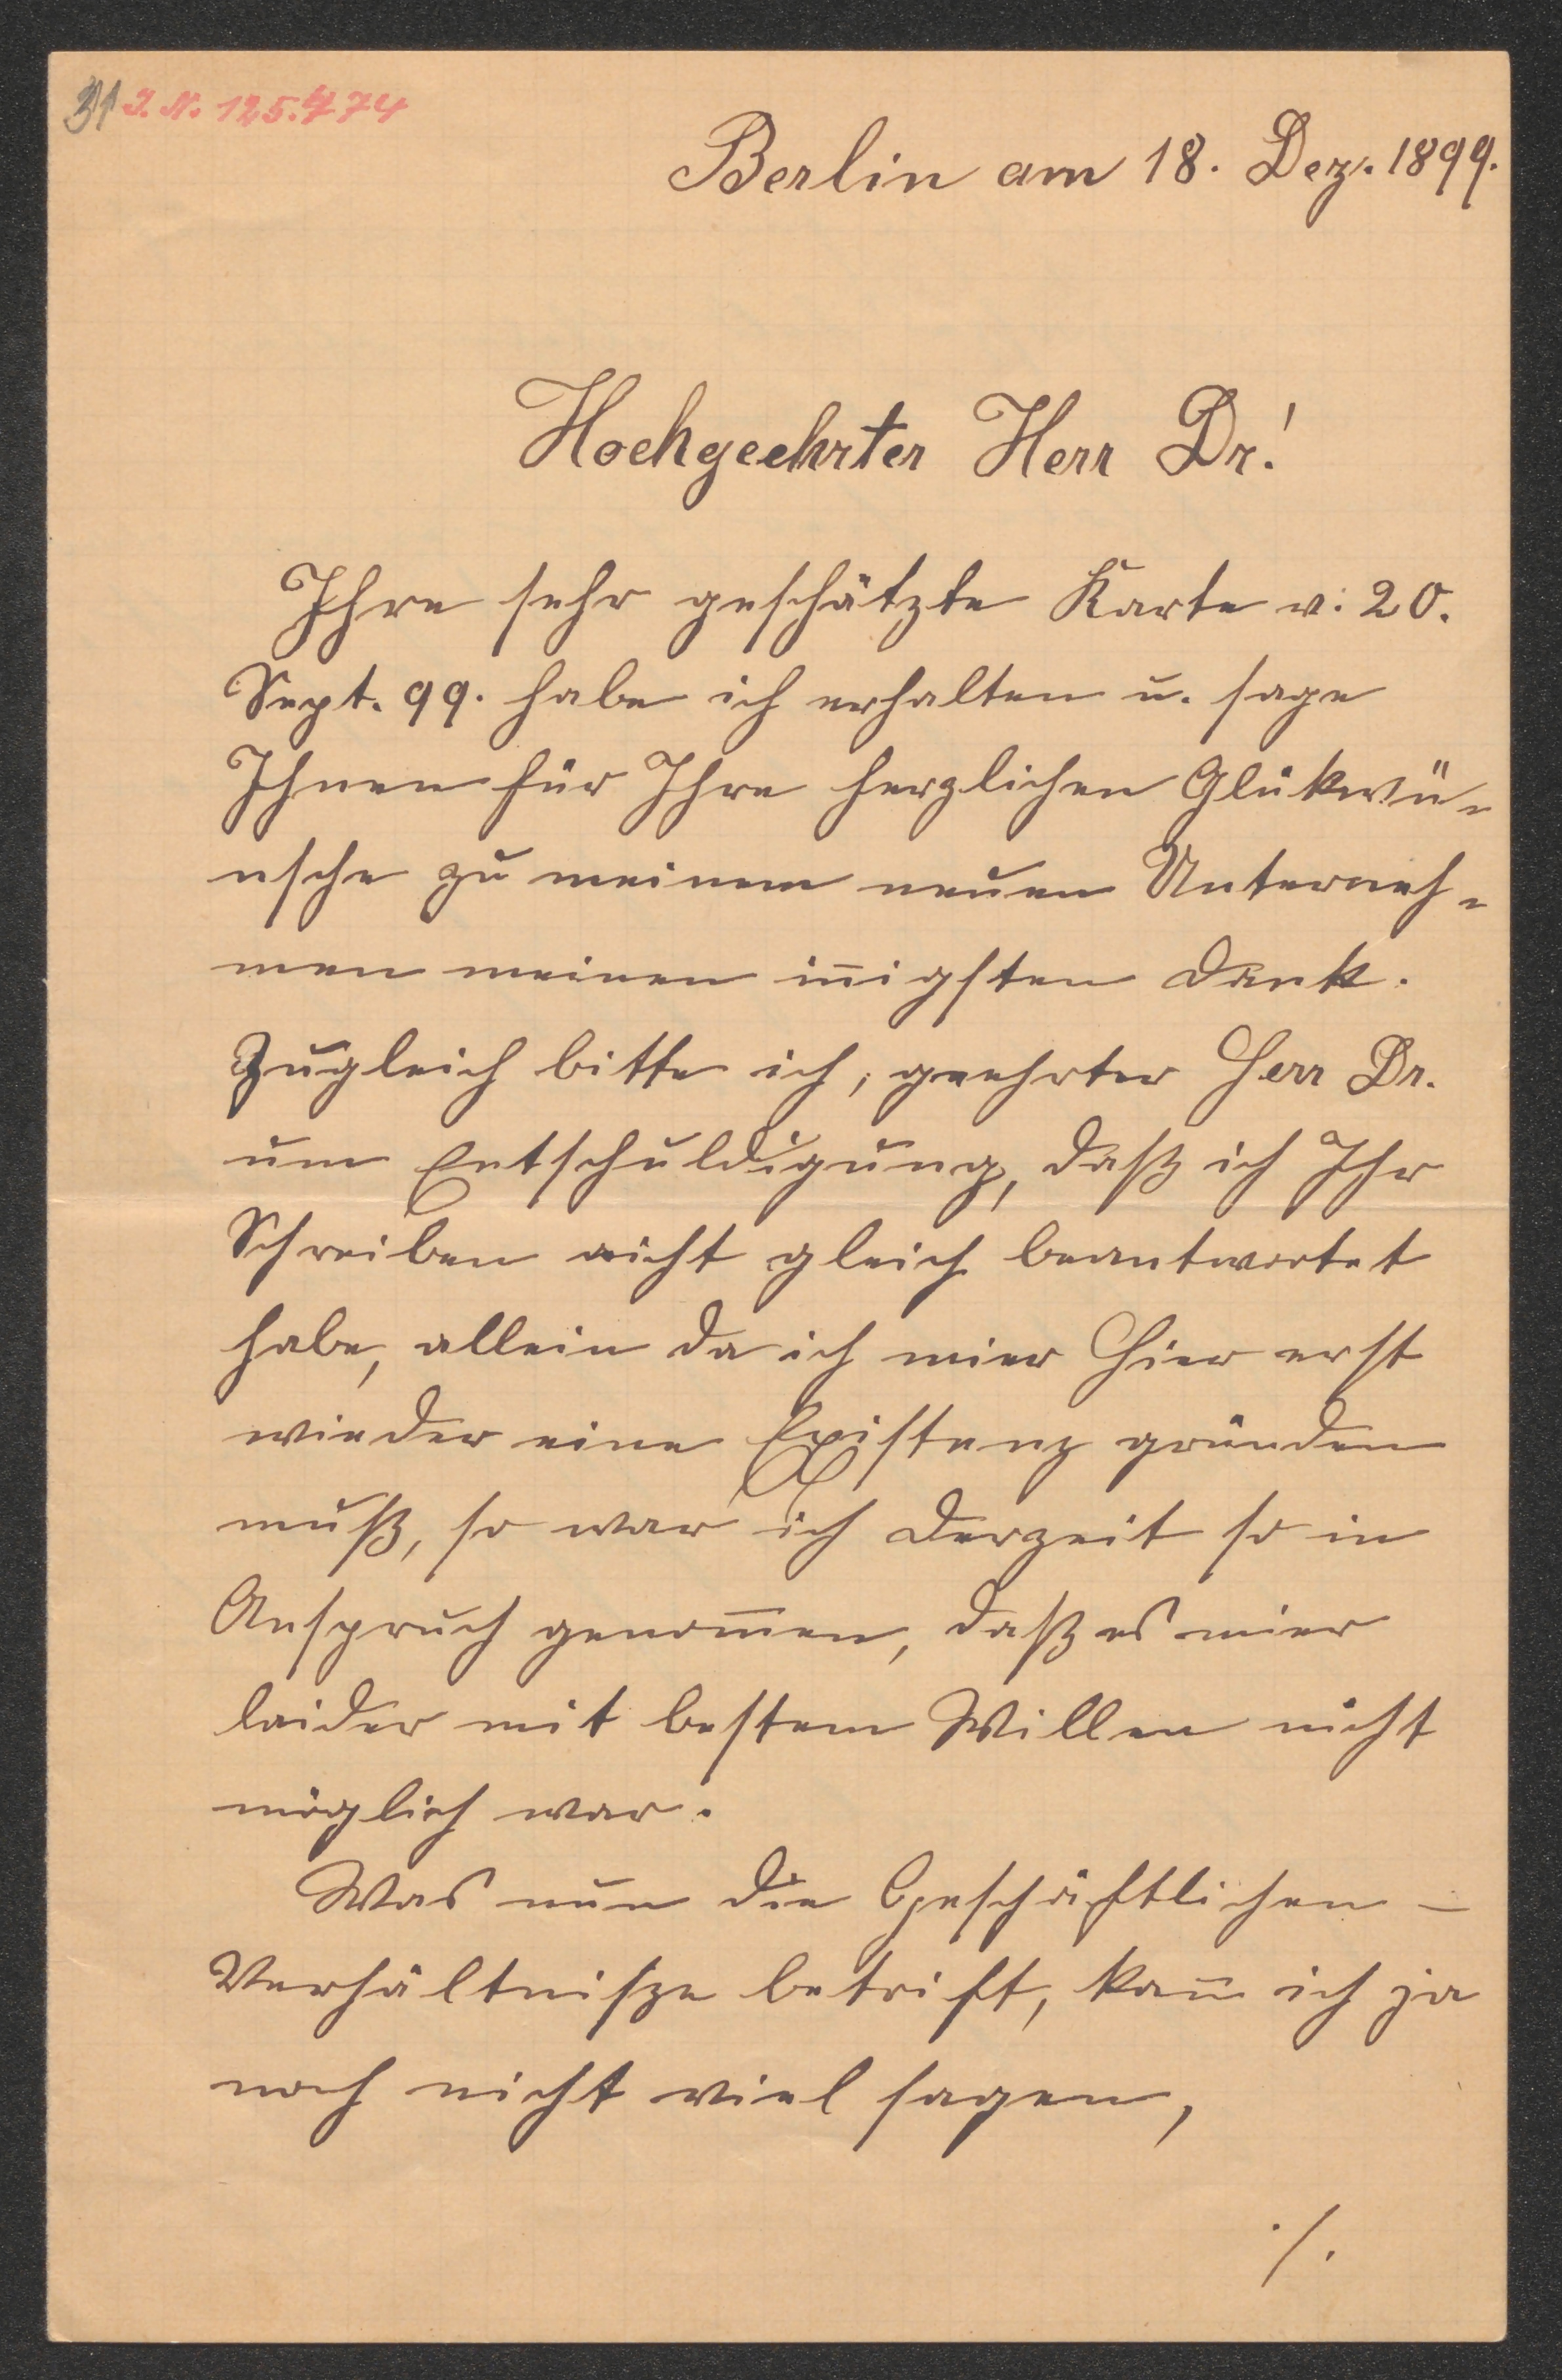 31 I. N. 125.474
Berlin am 18. Dez. 1899.
Hochgeehrter Herr Dr!
Ihre sehr geschätzte Karte v. 20.
Sept. 99. habe ich erhalten u. sage
Ihnen für Ihre herzlichen Glükwü-
nsche zu meinem neuen Unterneh-
men meinen iñigsten Dank.
Zugleich bitte ich, geehrter Herr Dr.
um Entschuldigung, daß ich Ihr
Schreiben nicht gleich beantwortet
habe, allein da ich mier hier erst
wieder eine Existenz gründen
muß, so war ich derzeit so in
Anspruch genom̅en, daß es mier
leider mit bestem Willen nicht
möglich war.
Was nun die Geschäftlichen –
Verhältnisze betrift, kan̅ ich ja
noch nicht viel sagen,
./.